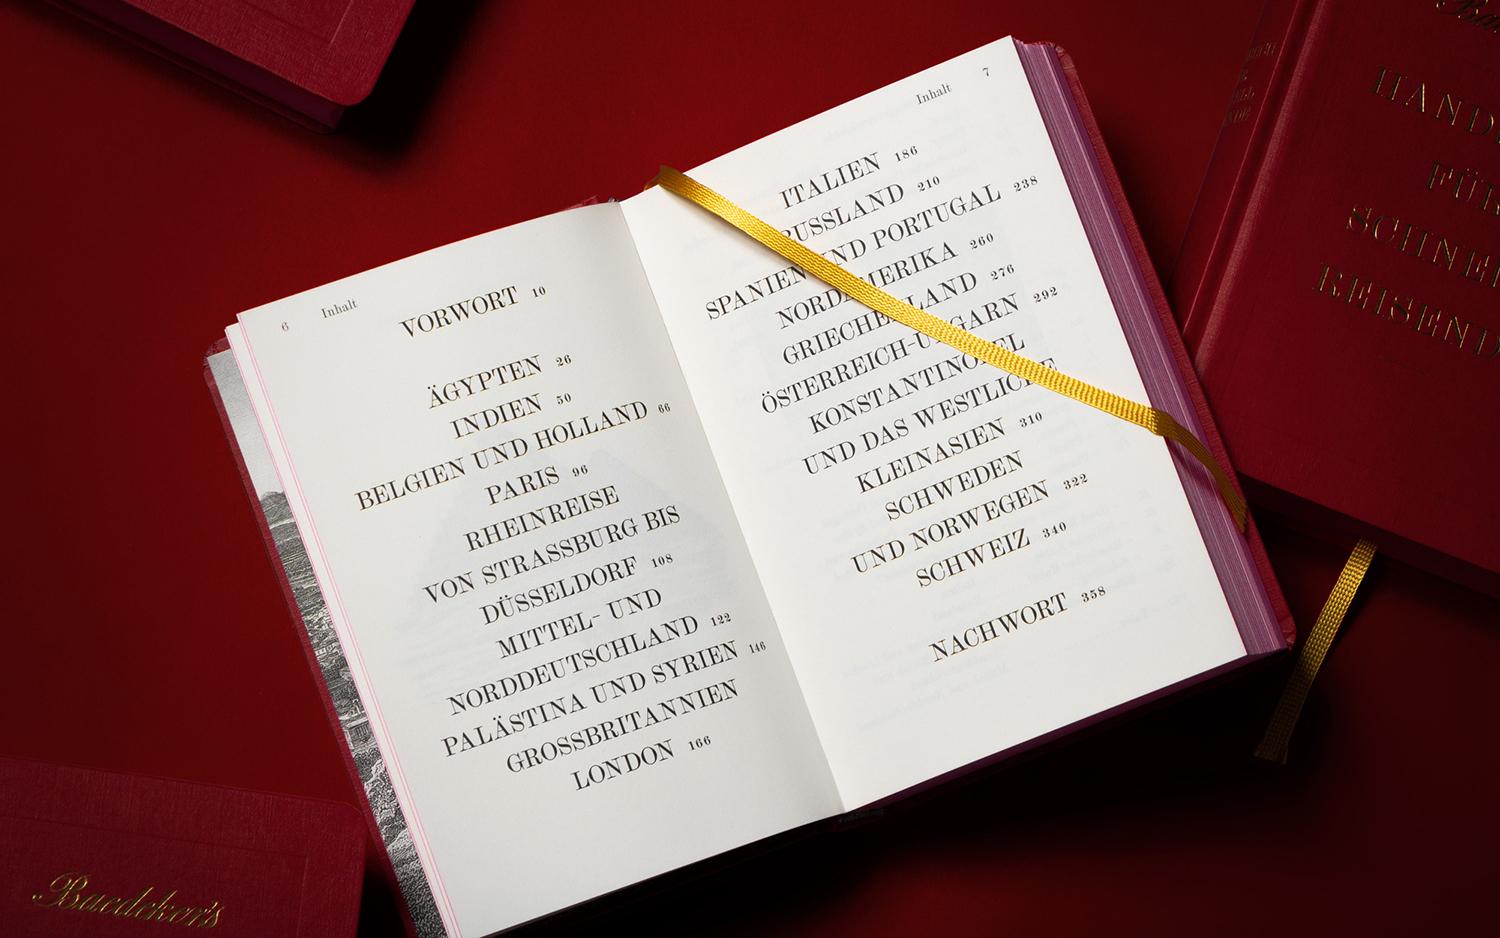 6 Inhalt
VORWORT 10
ÄGYPTEN 26
INDIEN 50
BELGIEN UND HOLLAND 66
PARIS 96
RHEINREISE
VON STRASSBURG BIS
DÜSSELDORF 108
MITTEL- UND
NORDDEUTSCHLAND 122
PALÄSTINA UND SYRIEN 146
GROSSBRITANNIEN
LONDON 166
Inhalt 7
ITALIEN 186
RUSSLAND 210
SPANIEN UND PORTUGAL 238
NORDAMERIKA 260
GRIECHENLAND 276
ÖSTERREICH-UNGARN 292
KONSTANTINOPEL
UND DAS WESTLICHE
KLEINASIEN 310
SCHWEDEN
UND NORWEGEN 322
SCHWEIZ 340
NACHWORT 358
Baedeker's
FÜR